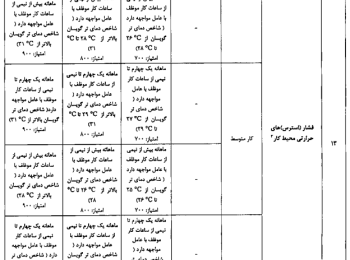 ۱۳
فشار (استرس)های
حرارتی محیط کار۲
کار متوسط
-
ماهانه بیش از نیمی
از ساعات کار
موظف با عامل
مواجهه دارد (
شاخص دمای تر
گویسان از ۲۶°C
تا ۲۸°C)
امتیاز: ۷۰۰
ماهانه بیش از نیمی از
ساعات کار موظف با
عامل مواجهه دارد (
شاخص دمای تر گویسان
بالاتر از ۲۸°C تا °C
۳۱)
امتیاز: ۸۰۰
ماهانه بیش از نیمی از
ساعات کار موظف با
عامل مواجهه دارد (
شاخص دمای تر گویسان
بالاتر از ۳۱°C)
امتیاز: ۹۰۰
-
ماهانه یک چهارم تا
نیمی از ساعات کار
موظف با عامل
مواجهه دارد (
شاخص دمای تر
گویسان از ۲۷°C
تا ۲۹°C)
امتیاز: ۷۰۰
ماهانه یک چهارم تا نیمی
از ساعات کار موظف با
عامل مواجهه دارد (
شاخص دمای تر گویسان
بالاتر از ۲۹°C تا °C
۳۱)
امتیاز: ۸۰۰
ماهانه یک چهارم تا
نیمی از ساعات کار
موظف با عامل مواجهه
دارد( شاخص دمای تر
گویسان بالاتر از ۳۱°C)
امتیاز: ۹۰۰
-
ماهانه بیش از نیمی
از ساعات کار
موظف با عامل
مواجهه دارد (
شاخص دمای تر
گویسان از ۲۵°C
تا ۲۶°C)
امتیاز: ۷۰۰
ماهانه بیش از نیمی از
ساعات کار موظف با
عامل مواجهه دارد (
شاخص دمای تر گویسان
بالاتر از ۲۶°C تا °C
۲۸)
امتیاز: ۸۰۰
ماهانه بیش از نیمی از
ساعات کار موظف با
عامل مواجهه دارد (
شاخص دمای تر گویسان
بالاتر از ۲۸°C)
امتیاز: ۹۰۰
ماهانه یک چهارم تا
نیمی از ساعات کار
موظف با عامل
مواجهه دارد (
شاخص دمای تر
ماهانه یک چهارم تا نیمی
از ساعات کار موظف با
عامل مواجهه دارد (
شاخص دمای تر گویسان
ماهانه یک چهارم تا
نیمی از ساعات کار
موظف با عامل مواجهه
دارد ( شاخص دمای تر